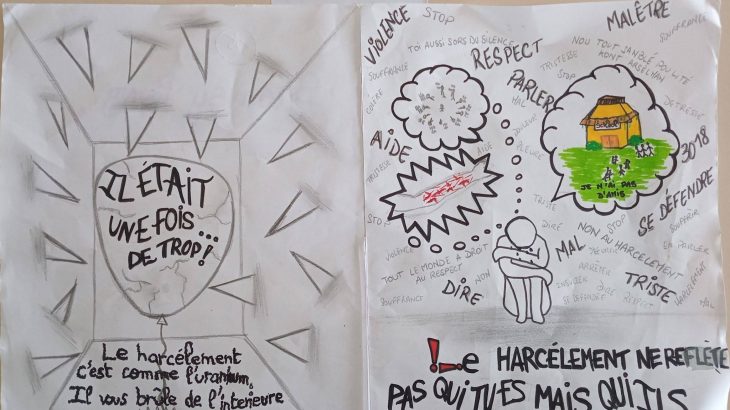 IL ÉTAIT
UNE FOIS...
DE TROP!
Le harcélement
c'est comme l'uranium,
Il vous brule de l'interieure
VIOLENCE
STOP
TOI AUSSI SORS DU SILENCE
RESPECT
MALÊTRE
SOUFFRANCE
SOUFFRANCE
TRISTESSE
COLÈRE
STOP
PARLER
MAL
DÉTRESSE
AIDE
DOULEUR
3018
TRISTESSE
AIDE
PLEURE
JE N'AI PAS
D'AMIS
SE DÉFENDRE
TRISTE
STOP
SOUFFRIR
DIRE
VIOLENCE
MAL
NON AU HARCÈLEMENT
EN PARLER
TOUT LE MONDE A DROIT
AU RESPECT
NON
ARRÊTER
TRISTE
HARCÈLEMENT
SOUFFRANCE
DIRE
INSULTER
SE DÉFENDRE
DIRE
RESPECT
MAL
!Le HARCÉLEMENT NE REFLÈTE
PAS QUI TU ES MAIS QUI ILS